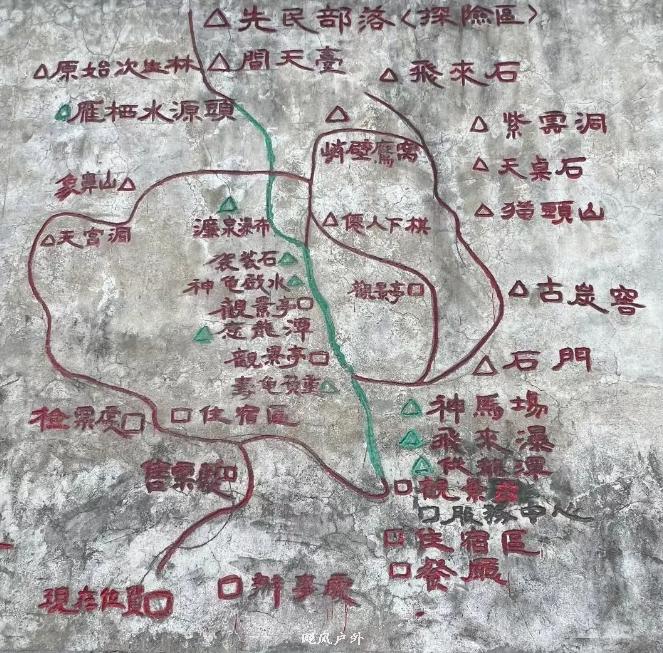 先民部落〈探險區〉
原始次生林
問天臺
飛來石
雁栖水源頭
紫雲洞
峭壁鷹窩
天桌石
象鼻山
猫頭山
濂泉瀑布
僊人下棋
天宮洞
袈裟石
神龟戲水
觀景亭
古炭窑
觀景亭
應龍潭
觀景亭
石門
寿龟負重
神馬場
检票處
住宿區
飛來瀑
伏龍潭
售票處
服務中心
住宿區
餐廳
辦事處
現在位置
飓风户外